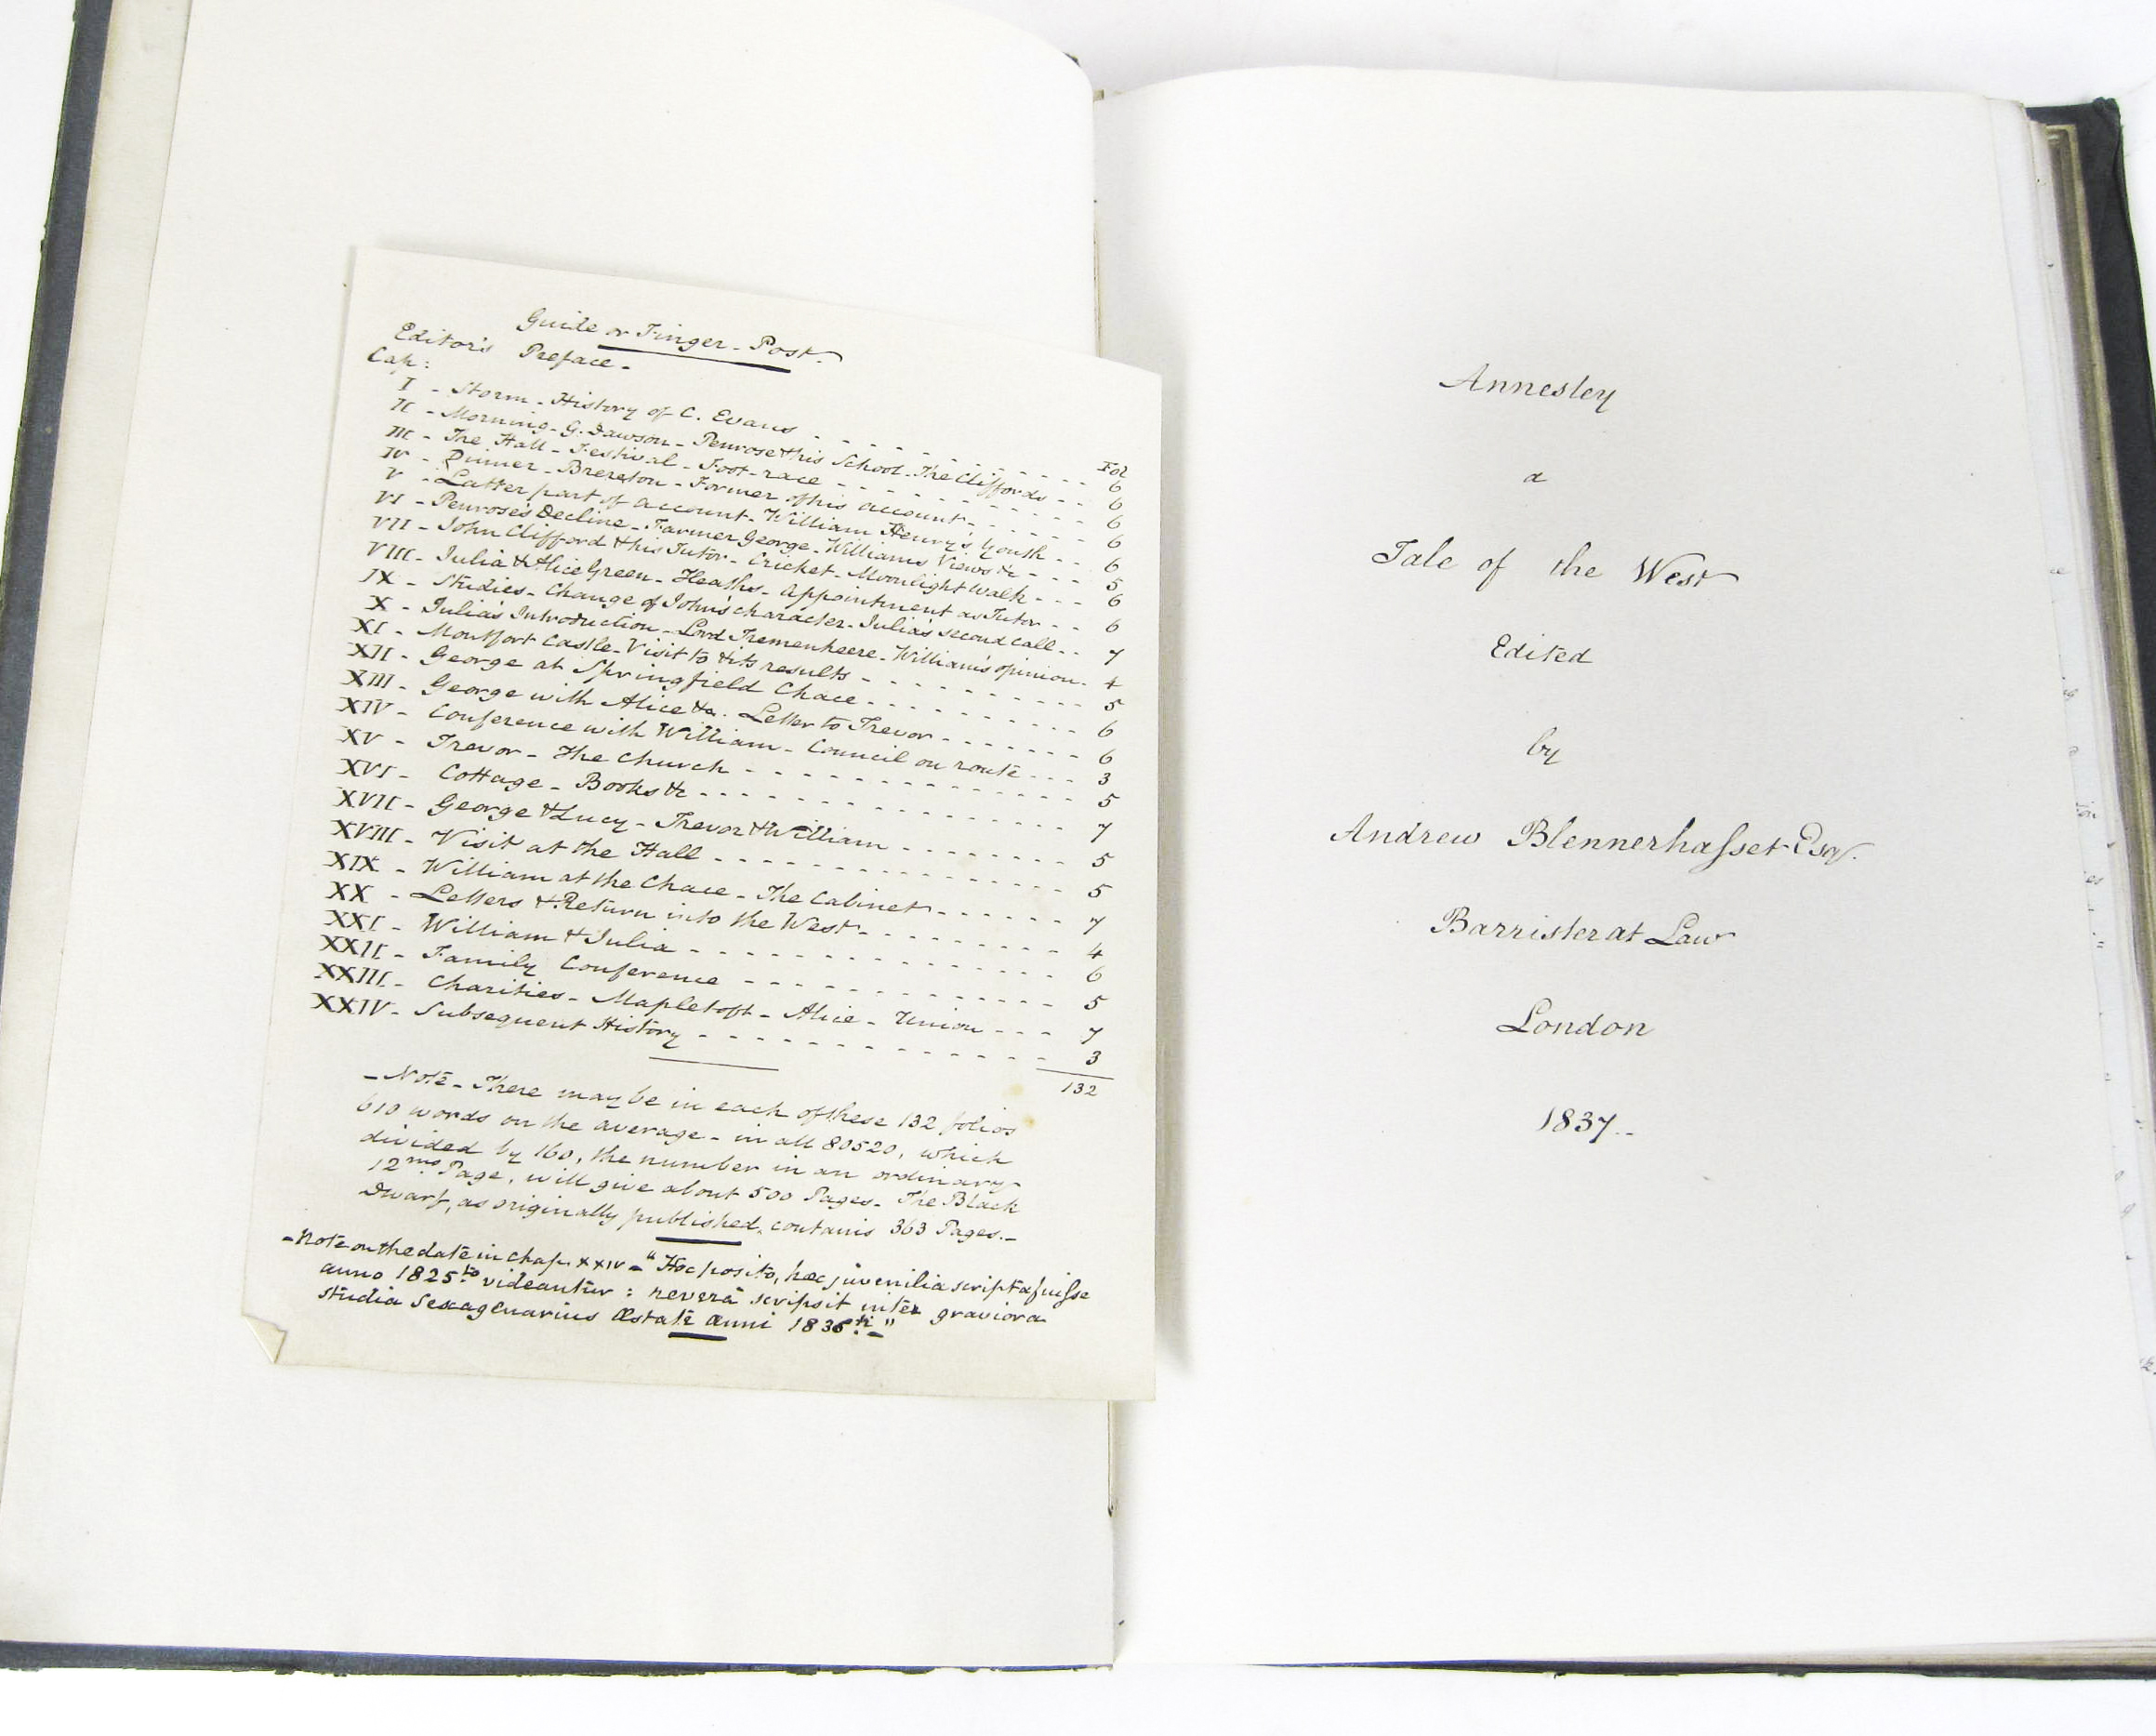 Guide or Finger-Post.
Editor's Preface-
Cap: Fol
I - Storm - History of C. Evans - - - 6
II - Morning - G. Dawson - Penrose & his School - The Cliffords - - 6
III - The Hall - Festival - Foot-race - - - 6
IV - Dinner - Brereton - Former of his account - - - 6
V - Latter part of account - William Henry's Youth - - 6
VI - Penrose's Decline - Farmer George - William's Views &c - - - 5
VII - John Clifford & his Tutor - Cricket - Moonlight Walk - - - 6
VIII - Julia & Alice Green - Heaths - Appointment as Tutor - - 6
IX - Studies - Change of John's character - Julia's second call - - 7
X - Julia's Introduction - Lord Tremenheere - William's opinion - 4
XI - Montfort Castle - Visit to & its results - - - 5
XII - George at Springfield Chace - - - 6
XIII - George with Alice &c. Letter to Trevor - - - 6
XIV - Conference with William - Council on route - - - 3
XV - Trevor - The Church - - - 5
XVI - Cottage - Books &c - - - 7
XVII - George & Lucy - Trevor & William - - - 5
XVIII - Visit at the Hall - - - 5
XIX - William at the Chace - The Cabinet - - - 7
XX - Letters & Return into the West - - - 4
XXI - William & Julia - - - 6
XXII - Family Conference - - - 5
XXIII - Charities - Mapletoft - Alice - Union - - - 7
XXIV - Subsequent History - - - 3
132
- Note - There may be in each of these 132 folios
610 words on the average - in all 80520, which
divided by 160, the number in an ordinary
12mo Page, will give about 500 Pages - The Black
Dwarf, as originally published, contains 363 Pages. -
- Note on the date in Chap. XXIV - "Hoc posito, hæc juvenilia scripta fuiſse
anno 1825to videantur: reverâ scripsit inter graviora
studia Sexagenarius Æstate Anni 1836ti -"
Annesley
a
Tale of the West
Edited
by
Andrew Blennerhaſset Esqr.
Barrister at Law
London
1837 -